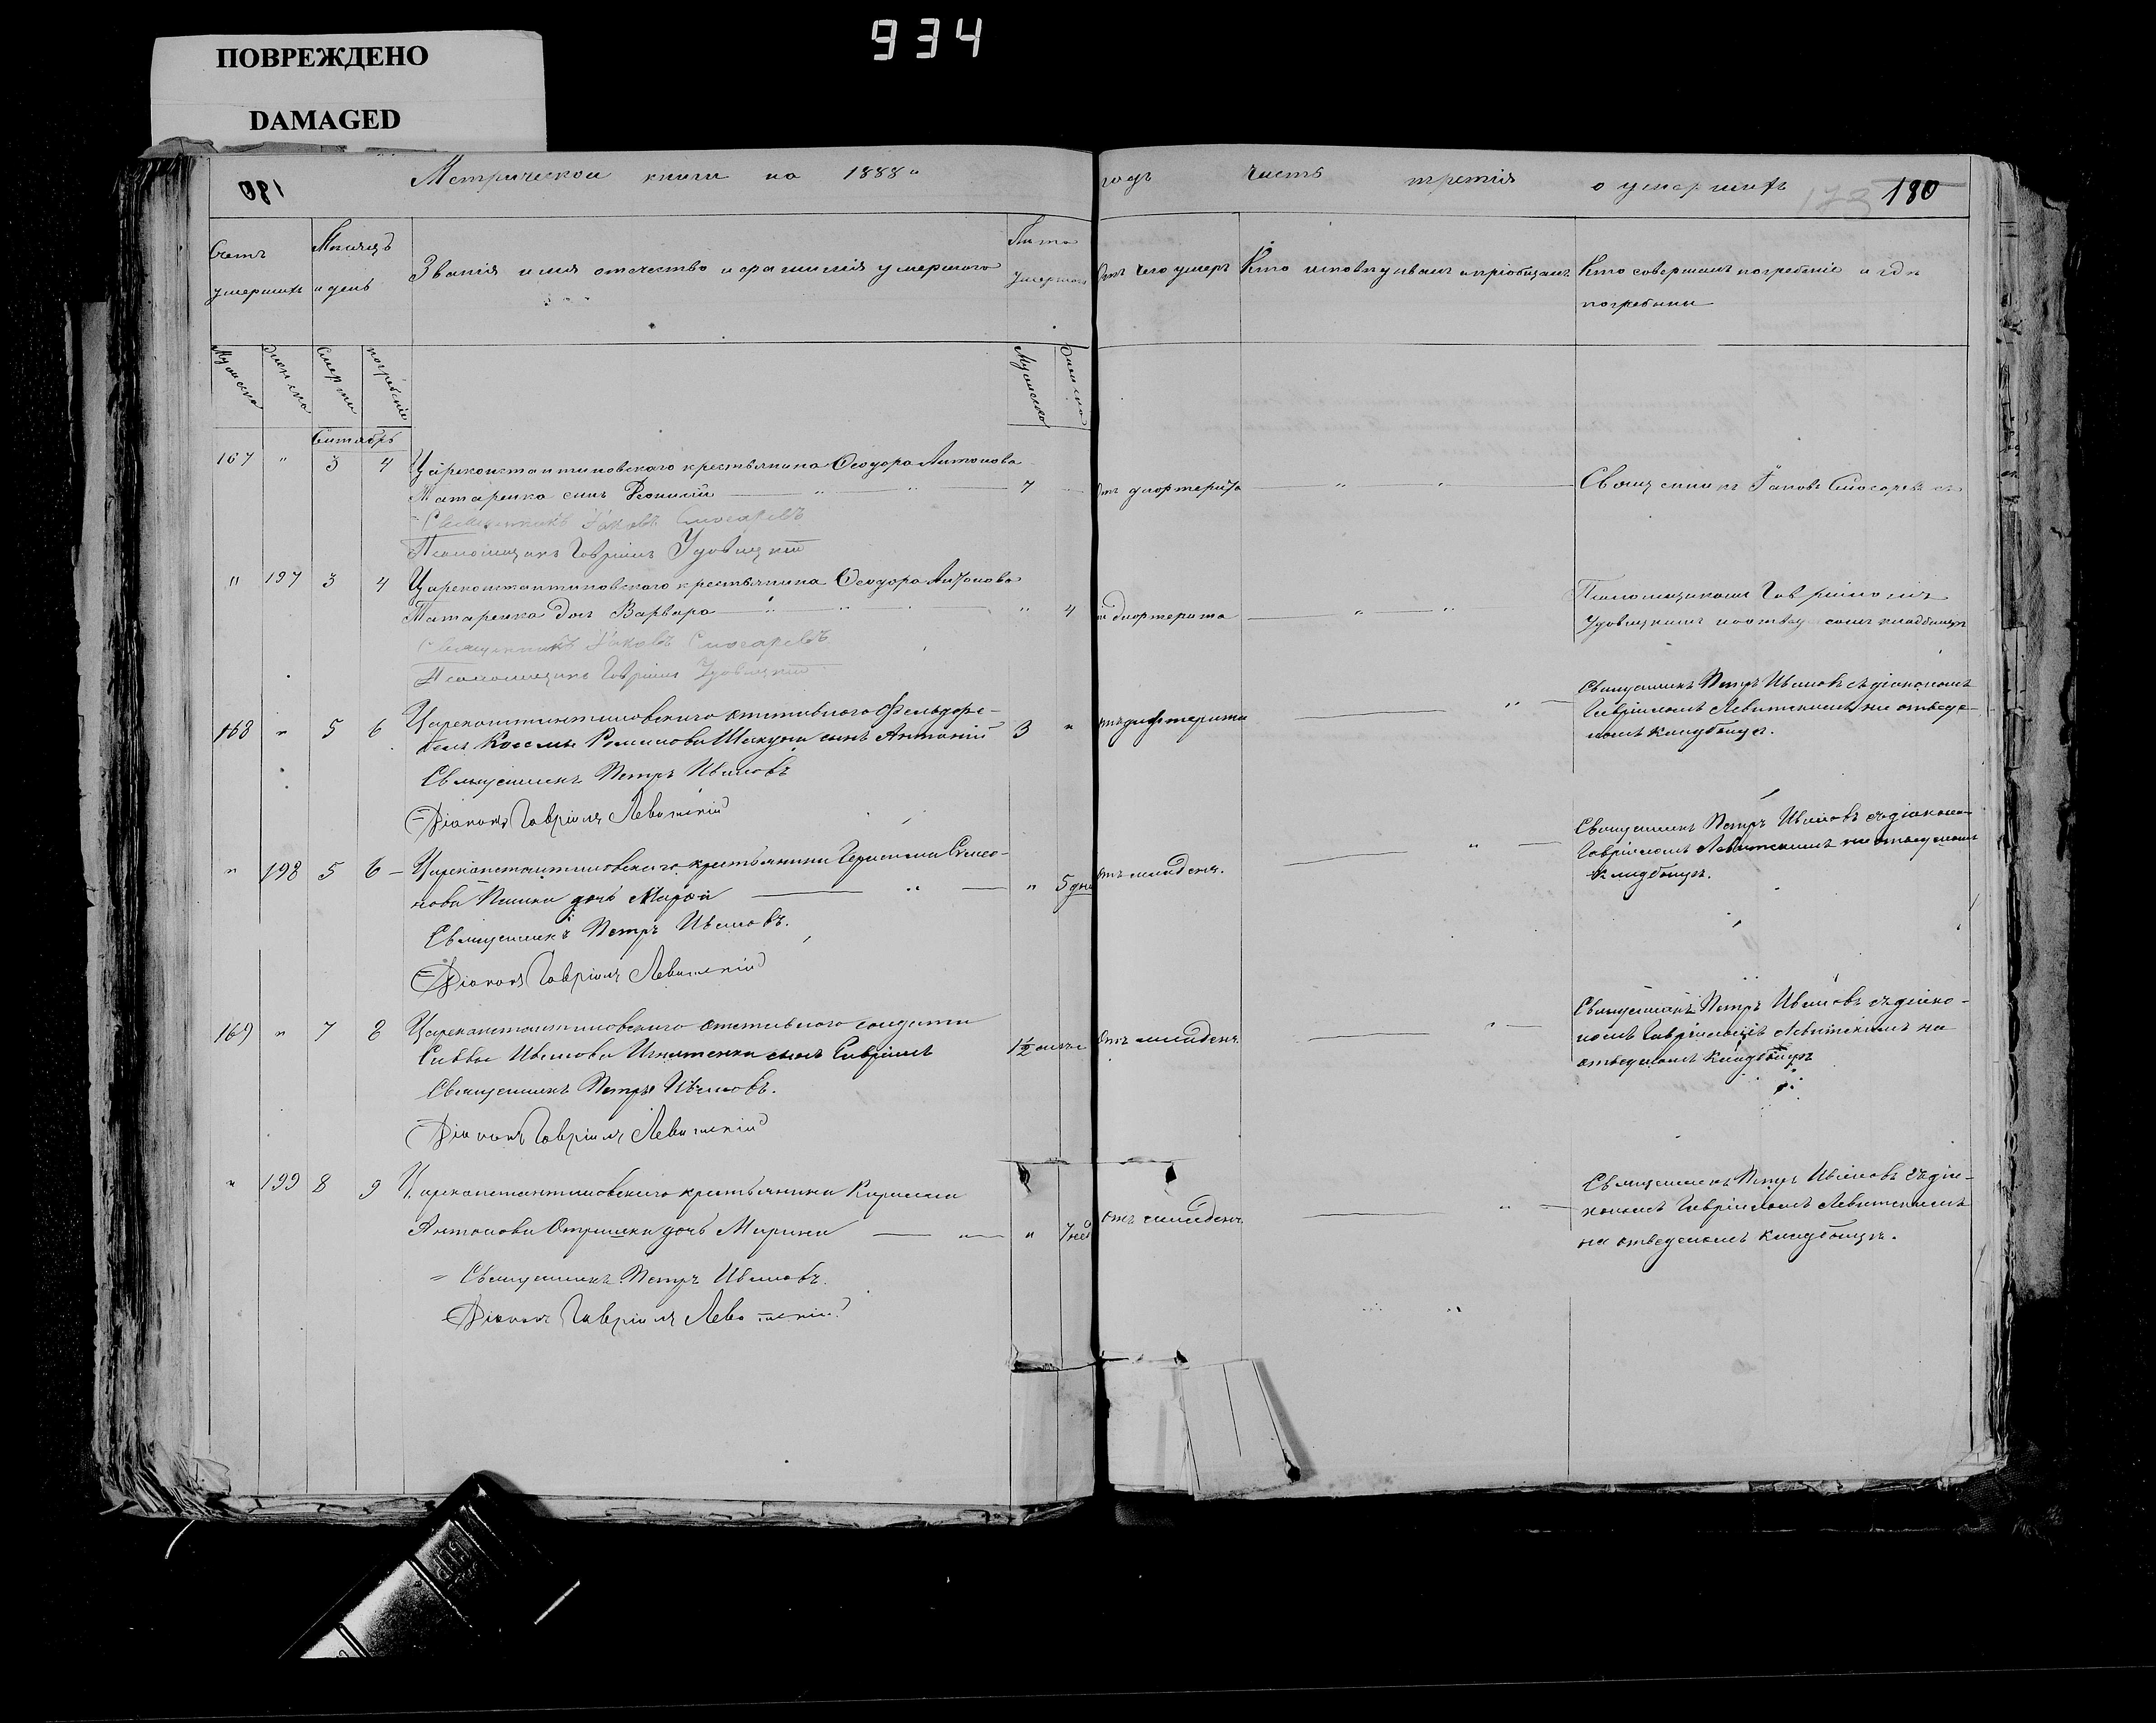 934
ПОВРЕЖДЕНО
DAMAGED
180
Метрической книги на 1888
годъ часть третія о умершихъ 180
Счетъ умершихъ
Мѣсяцъ и день
Званія имя отечество и фамилія умершого
Лѣта умершого
Отъ чего умеръ
Кто исповѣдывалъ и пріобщалъ
Кто совершалъ погребеніе и гдѣ
погребены
Мужеска
Женска
Смерти
погребенія
Мужеска
Женска
Сентябрь
167 " 3 4 Цареконстантиновского крестьянина Феодора Антонова
Татаренка сынъ 7 Отъ дифтерита " " Священникъ Іаковъ Слюсаревъ съ
Священникъ Іаковъ Слюсаревъ
Псаломщикъ Гавріилъ Удовицкій
" 197 3 4 Цареконстантиновского крестьянина Феодора Антонова
Татаренка дочь Варвара " 4 дифтерита " "
Псаломщикомъ Гавріиломъ
Удовицкимъ на отведенномъ кладбищѣ
Священникъ Іаковъ Слюсаревъ
Псаломщикъ Гавріилъ Удовицкій
168 " 5 6 Цареконстантиновского отставного Фельдфе-
беля Косьмы Романова сынъ Антоній 3 " отъ дифтерита "
Священникъ Петръ Ивановъ съ діакономъ
Гавріиломъ Левитскимъ на отведе-
номъ кладбищѣ.
Священникъ Петръ Ивановъ
Діаконъ Гавріилъ Левитскій
" 198 5 6 Цареконстантиновского крестьянина Герасима Симео-
нова дочь Марфа " " 5 дне отъ младенч. "
Священникъ Петръ Ивановъ съ діаконо-
Гавріиломъ Левитскимъ на отведеномъ
кладбищѣ.
Священникъ Петръ Ивановъ.
Діаконъ Гавріилъ Левитскій
169 " 7 8 Цареконстантиновского отставного солдата
Саввы Иванова Игнатенка сынъ Гавріилъ 1½ Отъ младенч. "
Священникъ Петръ Ивановъ съ діако-
номъ Гавріиломъ Левитскимъ на
отведеномъ кладбищѣ
Священникъ Петръ Ивановъ.
Діаконъ Гавріилъ Левитскій
" 199 8 9 Цареконстантиновского крестьянина Кирилла
Антонова дочь Марина " " 7 отъ младенч. "
Священникъ Петръ Ивановъ съ діа-
кономъ Гавріиломъ Левитскимъ
на отведеномъ кладбищѣ.
Священникъ Петръ Ивановъ.
Діаконъ Гавріилъ Левитскій